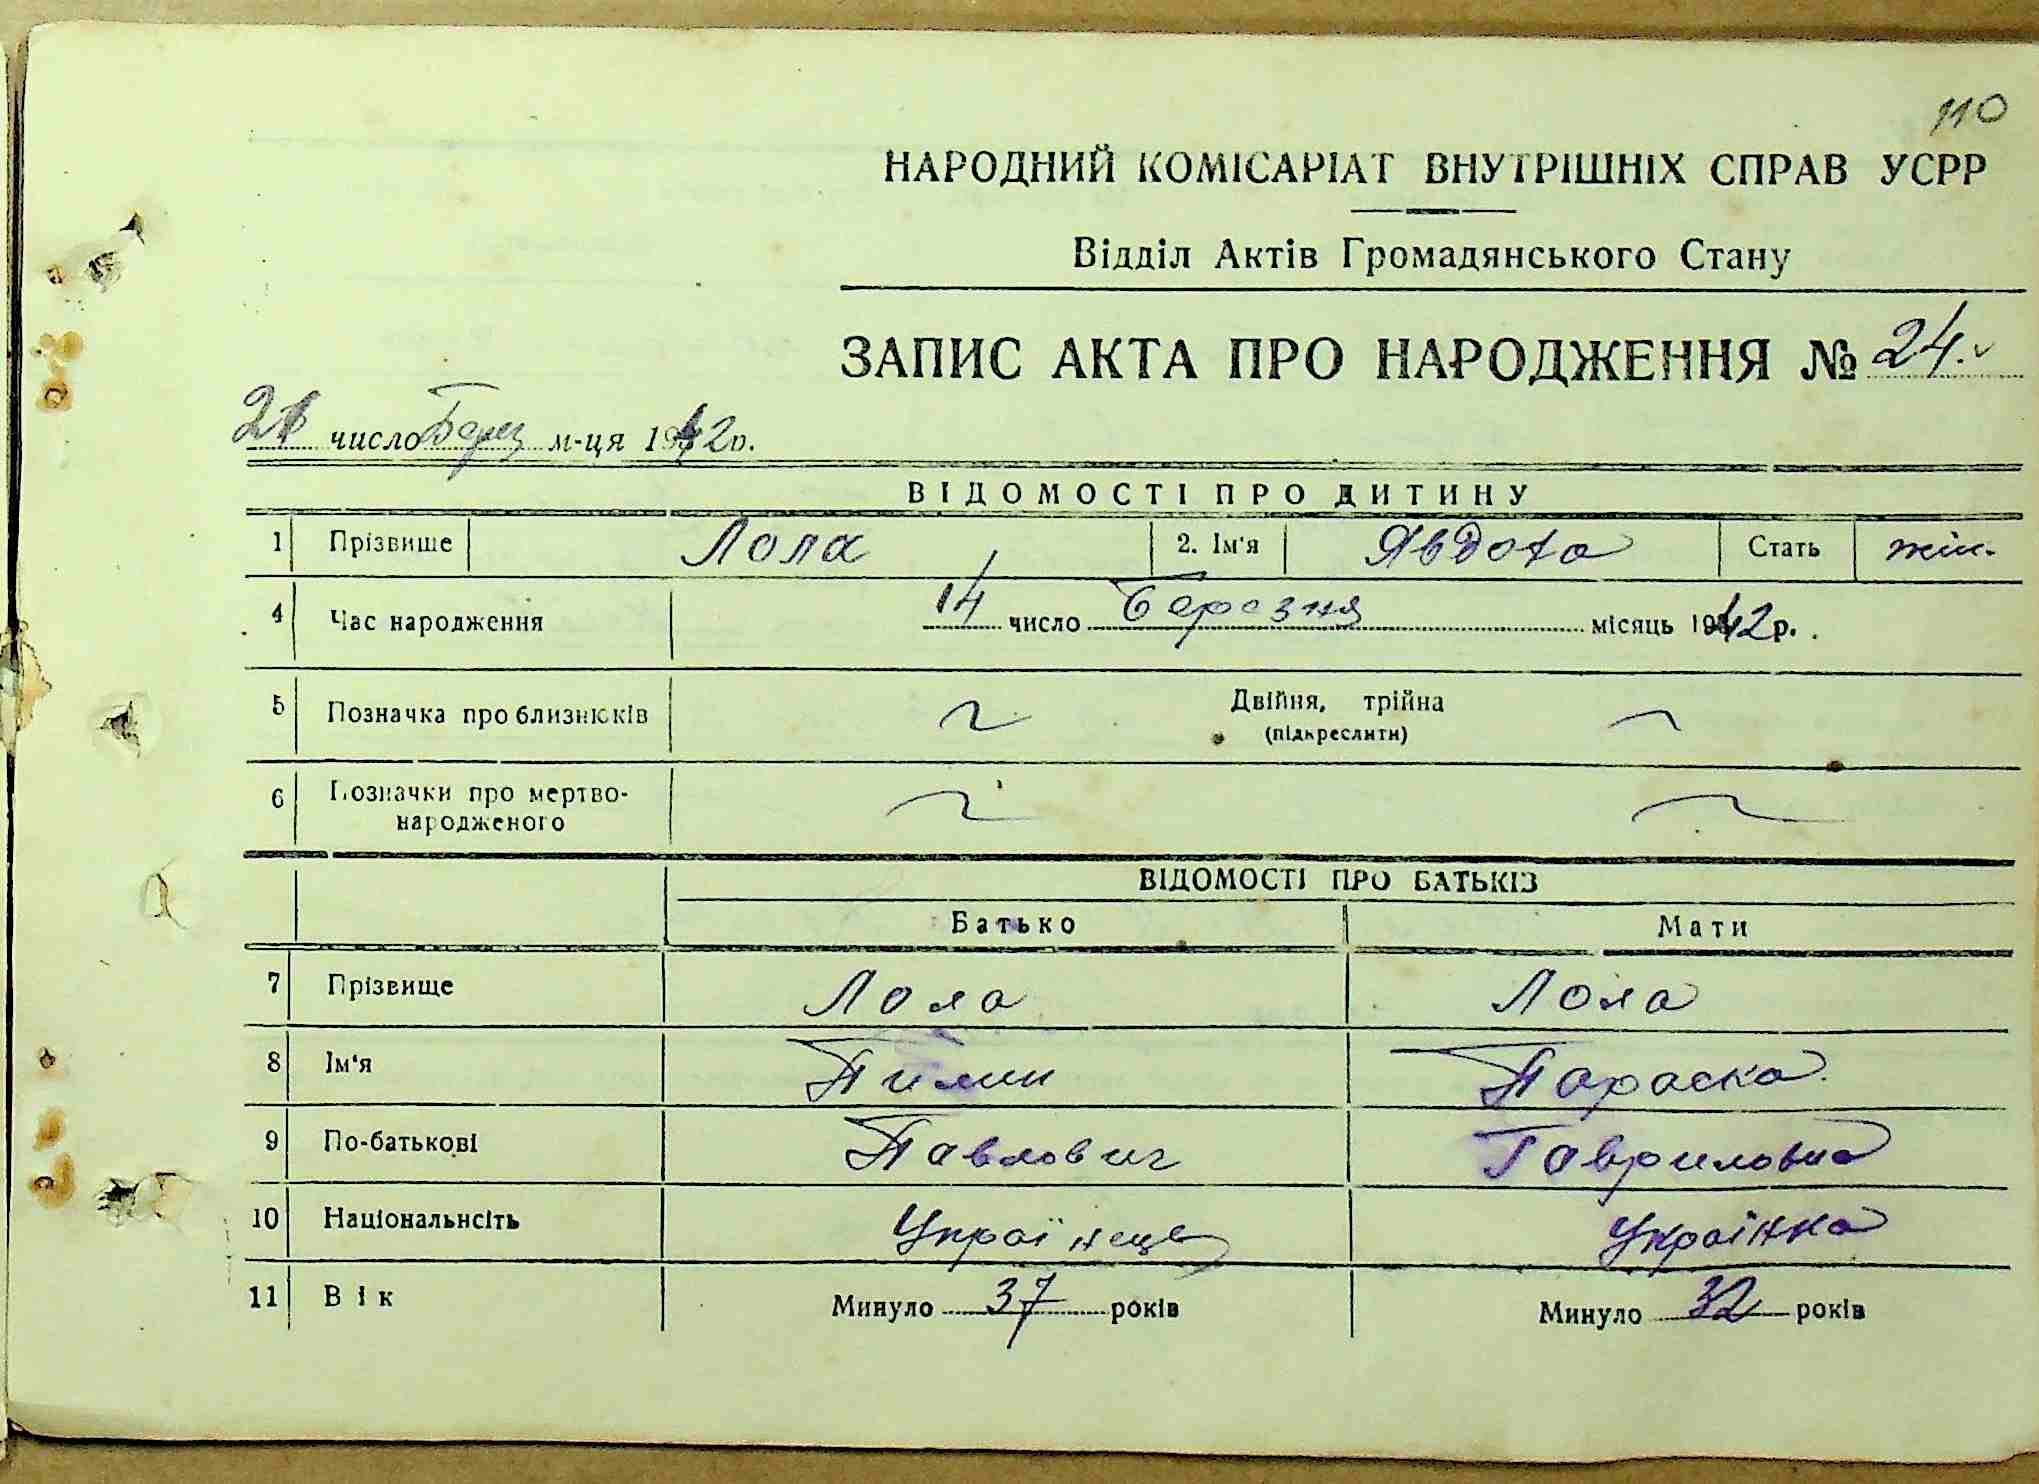 110
НАРОДНИЙ КОМІСАРІАТ ВНУТРІШНІХ СПРАВ УСРР
Відділ Актів Громадянського Стану
ЗАПИС АКТА ПРО НАРОДЖЕННЯ № 24.
число Берез м-ця 1942р.
ВІДОМОСТІ ПРО ДИТИНУ
1 Прізвише Лола 2. Ім'я Явдоха Стать жін.
4 Час народження 14 число Березня місяць 1942 р.
5 Позначка про близнюків Двійня, трійна
(підкреслити)
6 Позначки про мертво-
народженого
ВІДОМОСТІ ПРО БАТЬКІВ
Батько Мати
7 Прізвище Лола Лола
8 Ім'я Пимин Параска
9 По-батькові Павлович Гавриловна
10 Національнсіть Українець Українка
11 Вік Минуло 37 років Минуло 32 років